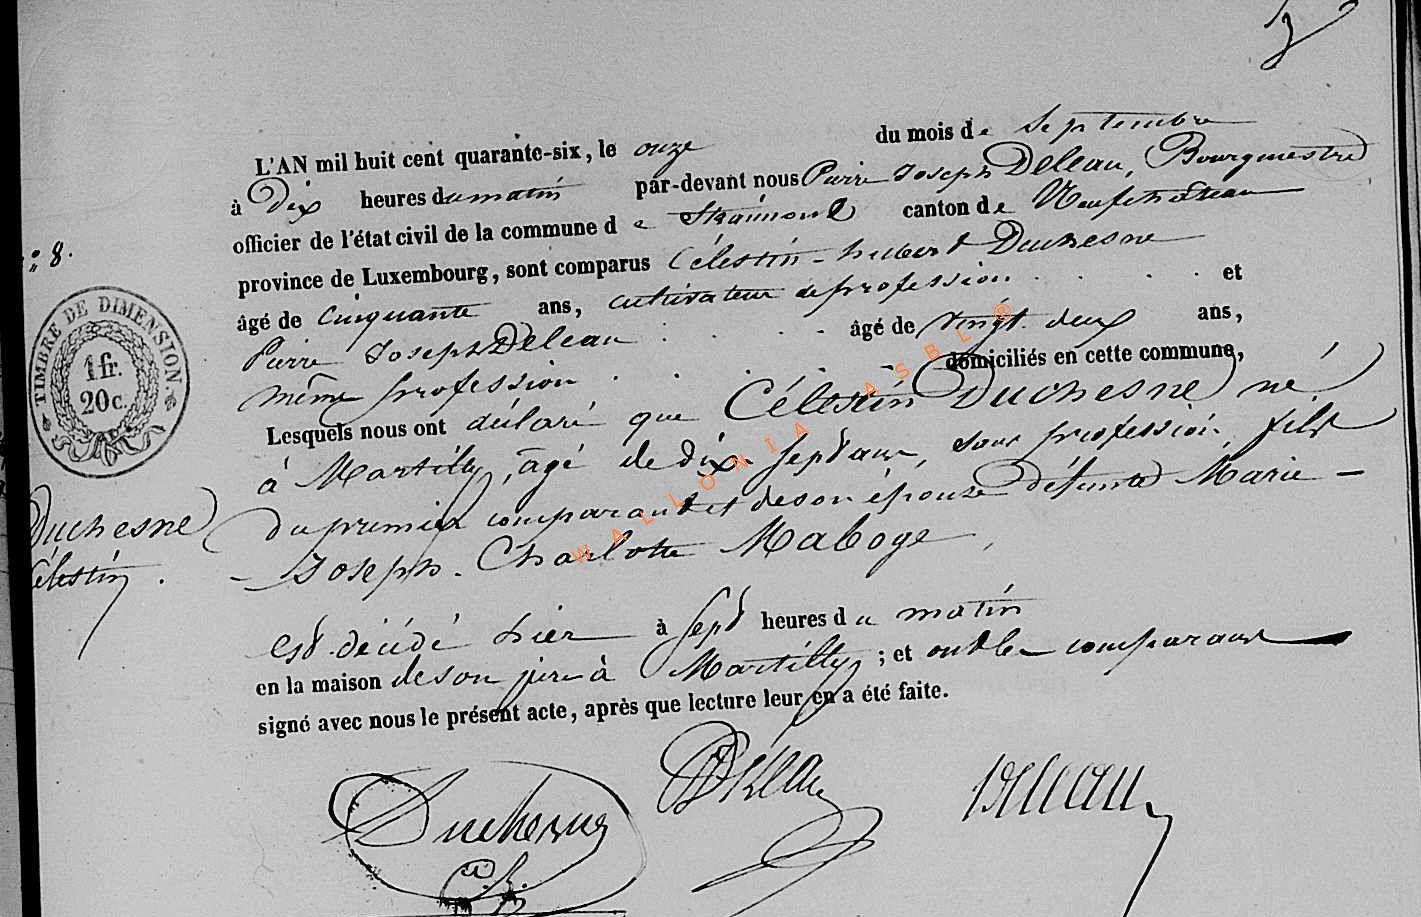 L'AN mil huit cent quarante-six, le onze du mois de Septembre
à Dix heures du matin par-devant nous Pierre Joseph Deleau, Bourgmestre
officier de l'état civil de la commune de Straimont canton de Neufchateau
N° 8.
province de Luxembourg, sont comparus Célestin-hubert Duchesne
âgé de Cinquante ans, cultivateur de profession et
Pierre Joseph Deleau âgé de vingt deux ans,
même profession domiciliés en cette commune,
Lesquels nous ont déclaré que Célestin Duchesne né
à Martilly, âgé de dix sept ans, sans profession, fils
du premier comparant et de son épouse défunte Marie-
Joseph-Charlotte Maboge,
Duchesne
Célestin.
est décédé hier à sept heures du matin
en la maison de son père à Martilly; et ont les comparans
signé avec nous le présent acte, après que lecture leur en a été faite.
Duchesne
Deleau
Deleau
TIMBRE DE DIMENSION.
1 fr.
20 c.
WALLONIA ASBL ®